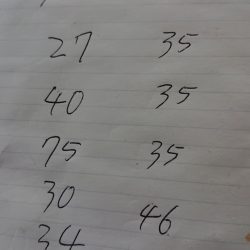 27 35
40 35
75 35
30
46
34